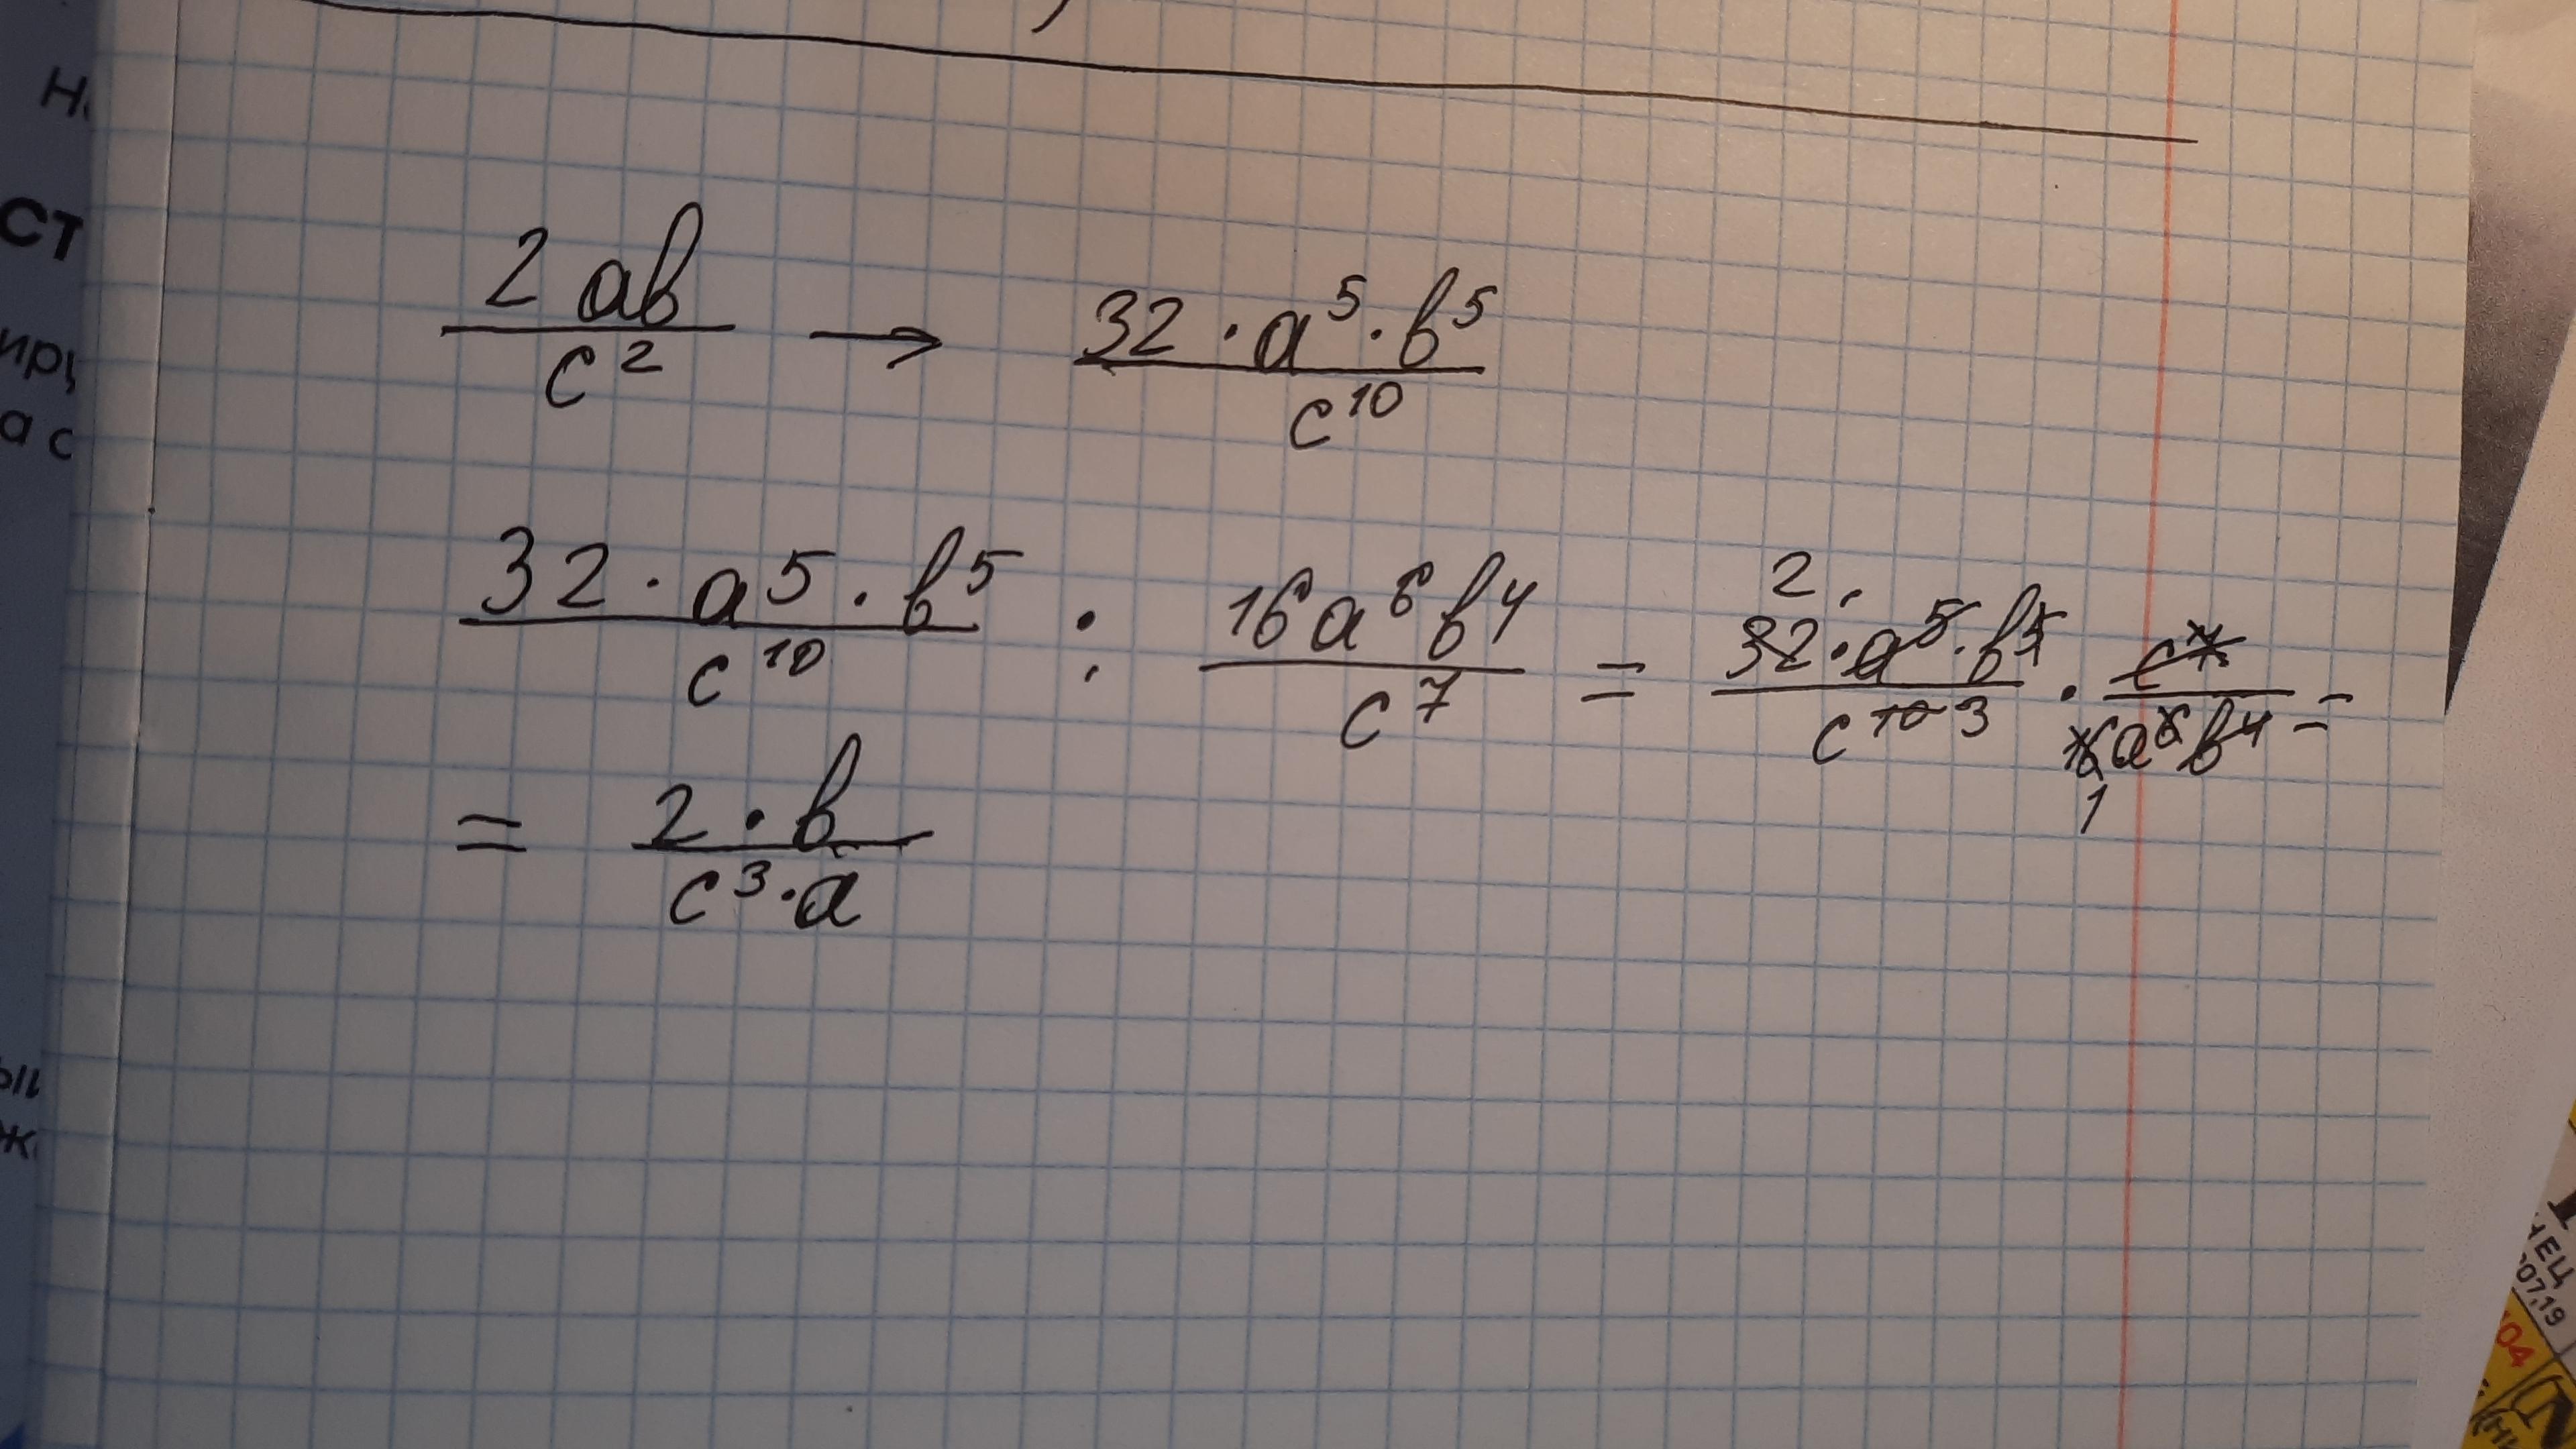 Н
СТ
ир
а с
2ab/c² → 32·a⁵·b⁵/c¹⁰
32·a⁵·b⁵/c¹⁰ : 16a⁶b⁴/c⁷ = 2 32·a⁵·b⁵/c¹⁰ 3 · c⁷/16a⁶b⁴ 1 =
= 2·b/c³·a
ж
НЕЦ
07.19
04